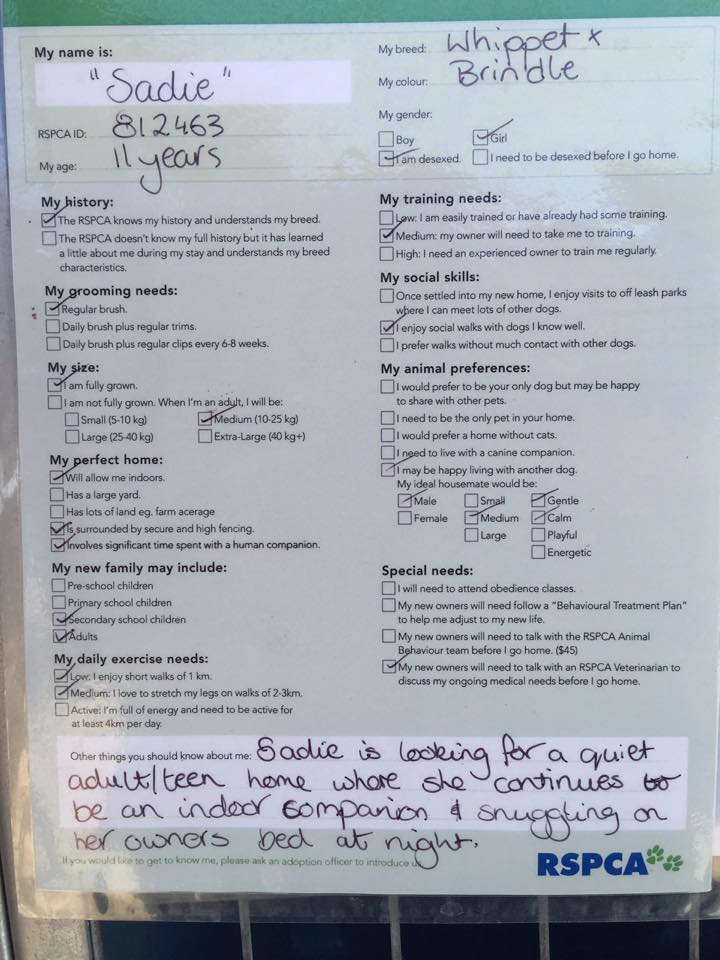 My name is:
"Sadie"
RSPCA ID: 812463
My age: 11 years
My breed: Whippet x
My colour: Brindle
My gender:
Boy Girl
I am desexed. I need to be desexed before I go home.
My history:
The RSPCA knows my history and understands my breed.
The RSPCA doesn't know my full history but it has learned
a little about me during my stay and understands my breed
characteristics.
My grooming needs:
Regular brush.
Daily brush plus regular trims.
Daily brush plus regular clips every 6-8 weeks.
My size:
I am fully grown.
I am not fully grown. When I'm an adult, I will be:
Small (5-10 kg) Medium (10-25 kg)
Large (25-40 kg) Extra-Large (40 kg+)
My perfect home:
Will allow me indoors.
Has a large yard.
Has lots of land eg. farm acerage
Is surrounded by secure and high fencing.
Involves significant time spent with a human companion.
My new family may include:
Pre-school children
Primary school children
Secondary school children
Adults
My daily exercise needs:
Low: I enjoy short walks of 1 km.
Medium: I love to stretch my legs on walks of 2-3km.
Active: I'm full of energy and need to be active for
at least 4km per day.
My training needs:
Low: I am easily trained or have already had some training.
Medium: my owner will need to take me to training.
High: I need an experienced owner to train me regularly.
My social skills:
Once settled into my new home, I enjoy visits to off leash parks
where I can meet lots of other dogs.
I enjoy social walks with dogs I know well.
I prefer walks without much contact with other dogs.
My animal preferences:
I would prefer to be your only dog but may be happy
to share with other pets.
I need to be the only pet in your home.
I would prefer a home without cats.
I need to live with a canine companion.
I may be happy living with another dog.
My ideal housemate would be:
Male Small Gentle
Female Medium Calm
Large Playful
Energetic
Special needs:
I will need to attend obedience classes.
My new owners will need follow a "Behavioural Treatment Plan"
to help me adjust to my new life.
My new owners will need to talk with the RSPCA Animal
Behaviour team before I go home. ($45)
My new owners will need to talk with an RSPCA Veterinarian to
discuss my ongoing medical needs before I go home.
Other things you should know about me: Sadie is looking for a quiet
adult/teen home where she continues to
be an indoor companion & snuggling on
her owners bed at night.
If you would like to get to know me, please ask an adoption officer to introduce us
RSPCA